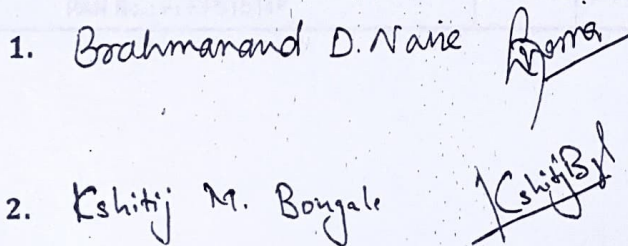 1. Brahmanand D. Naik
2. Kshitij M. Bongale KshitijB